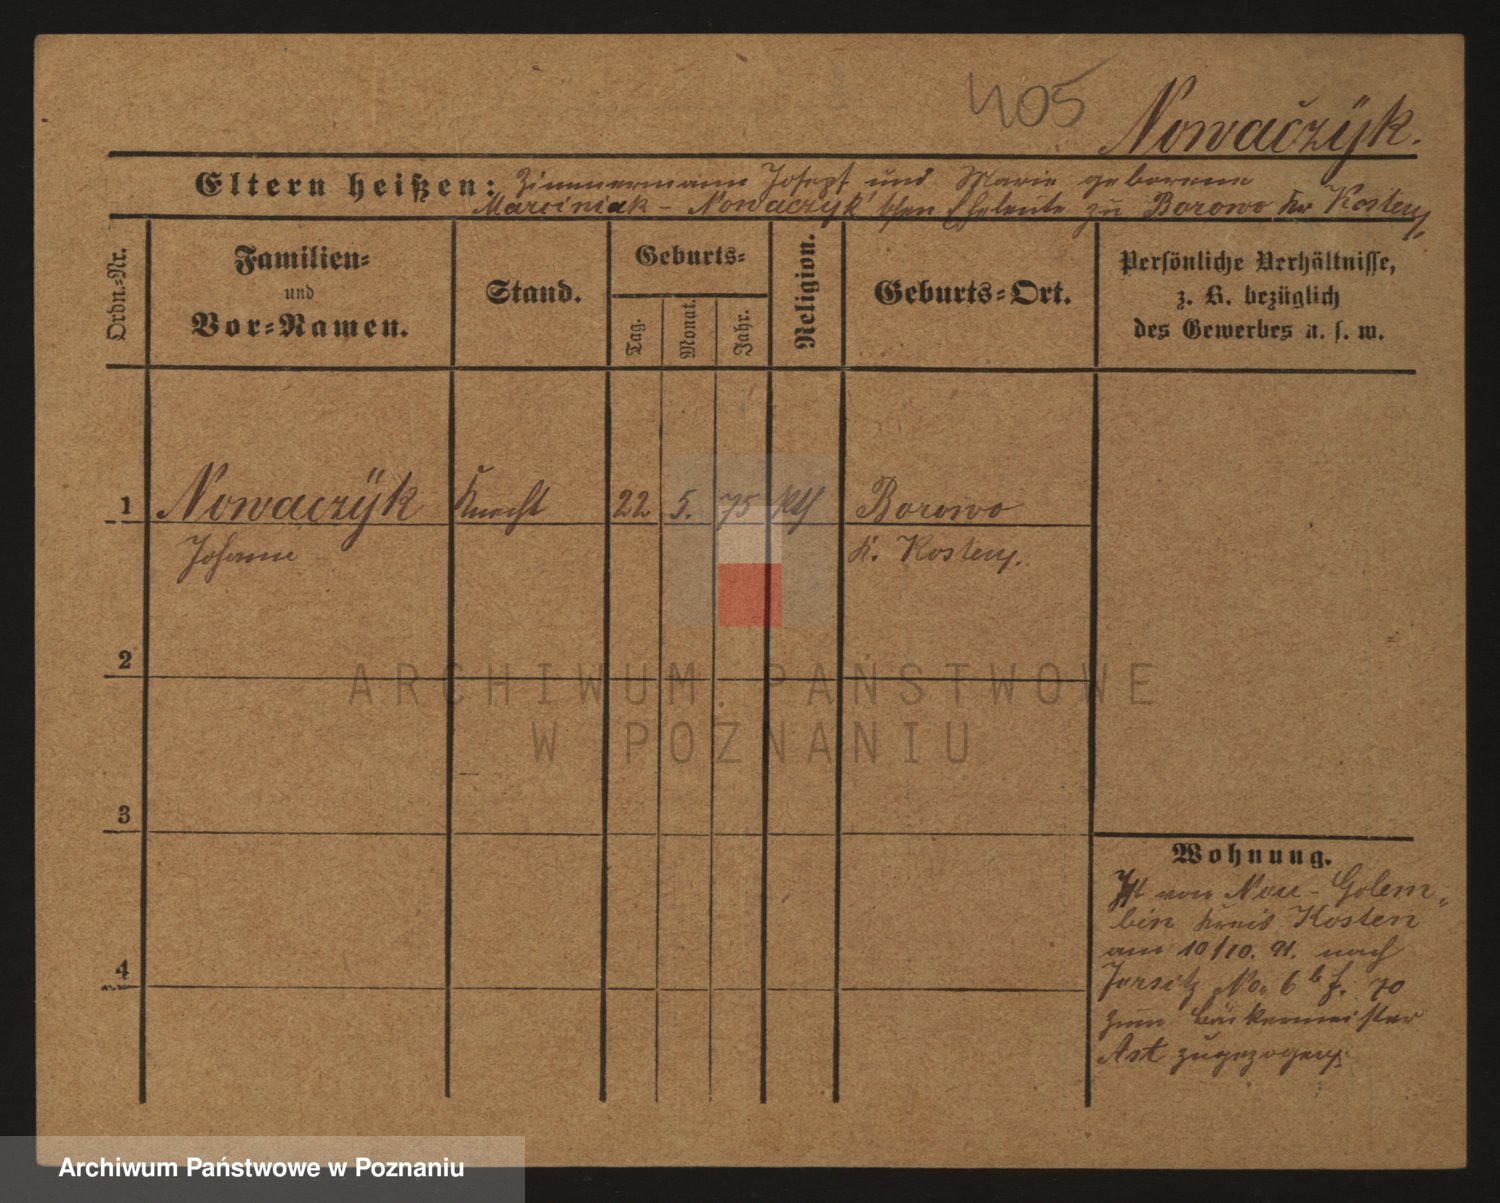 405
Nowaczÿk.
Eltern heißen: Zimmermann Josept und Marie geborene
Marciniak - Nowaczÿk'schen Eheleute zu Borowo kr Kosten,
Ordn.-Nr.
Familien-
und
Vor-Namen.
Stand.
Geburts-
Tag.
Monat.
Jahr.
Religion.
Geburts-Ort.
Persönliche Verhältnisse,
z. B. bezüglich
des Gewerbes u. s. w.
1 Nowaczÿk Knecht 22 5. 75 kth Borowo
Johann K. Kosten.
2
3
4
Wohnung.
Ist von Neu-Golem-
bin Kreis Kosten
am 10/10. 91. nach
Jersitz No. 6 b f. 70
zum Bäckermeister
Ast zugezogen.
ARCHIWUM PAŃSTWOWE
W POZNANIU
Archiwum Państwowe w Poznaniu